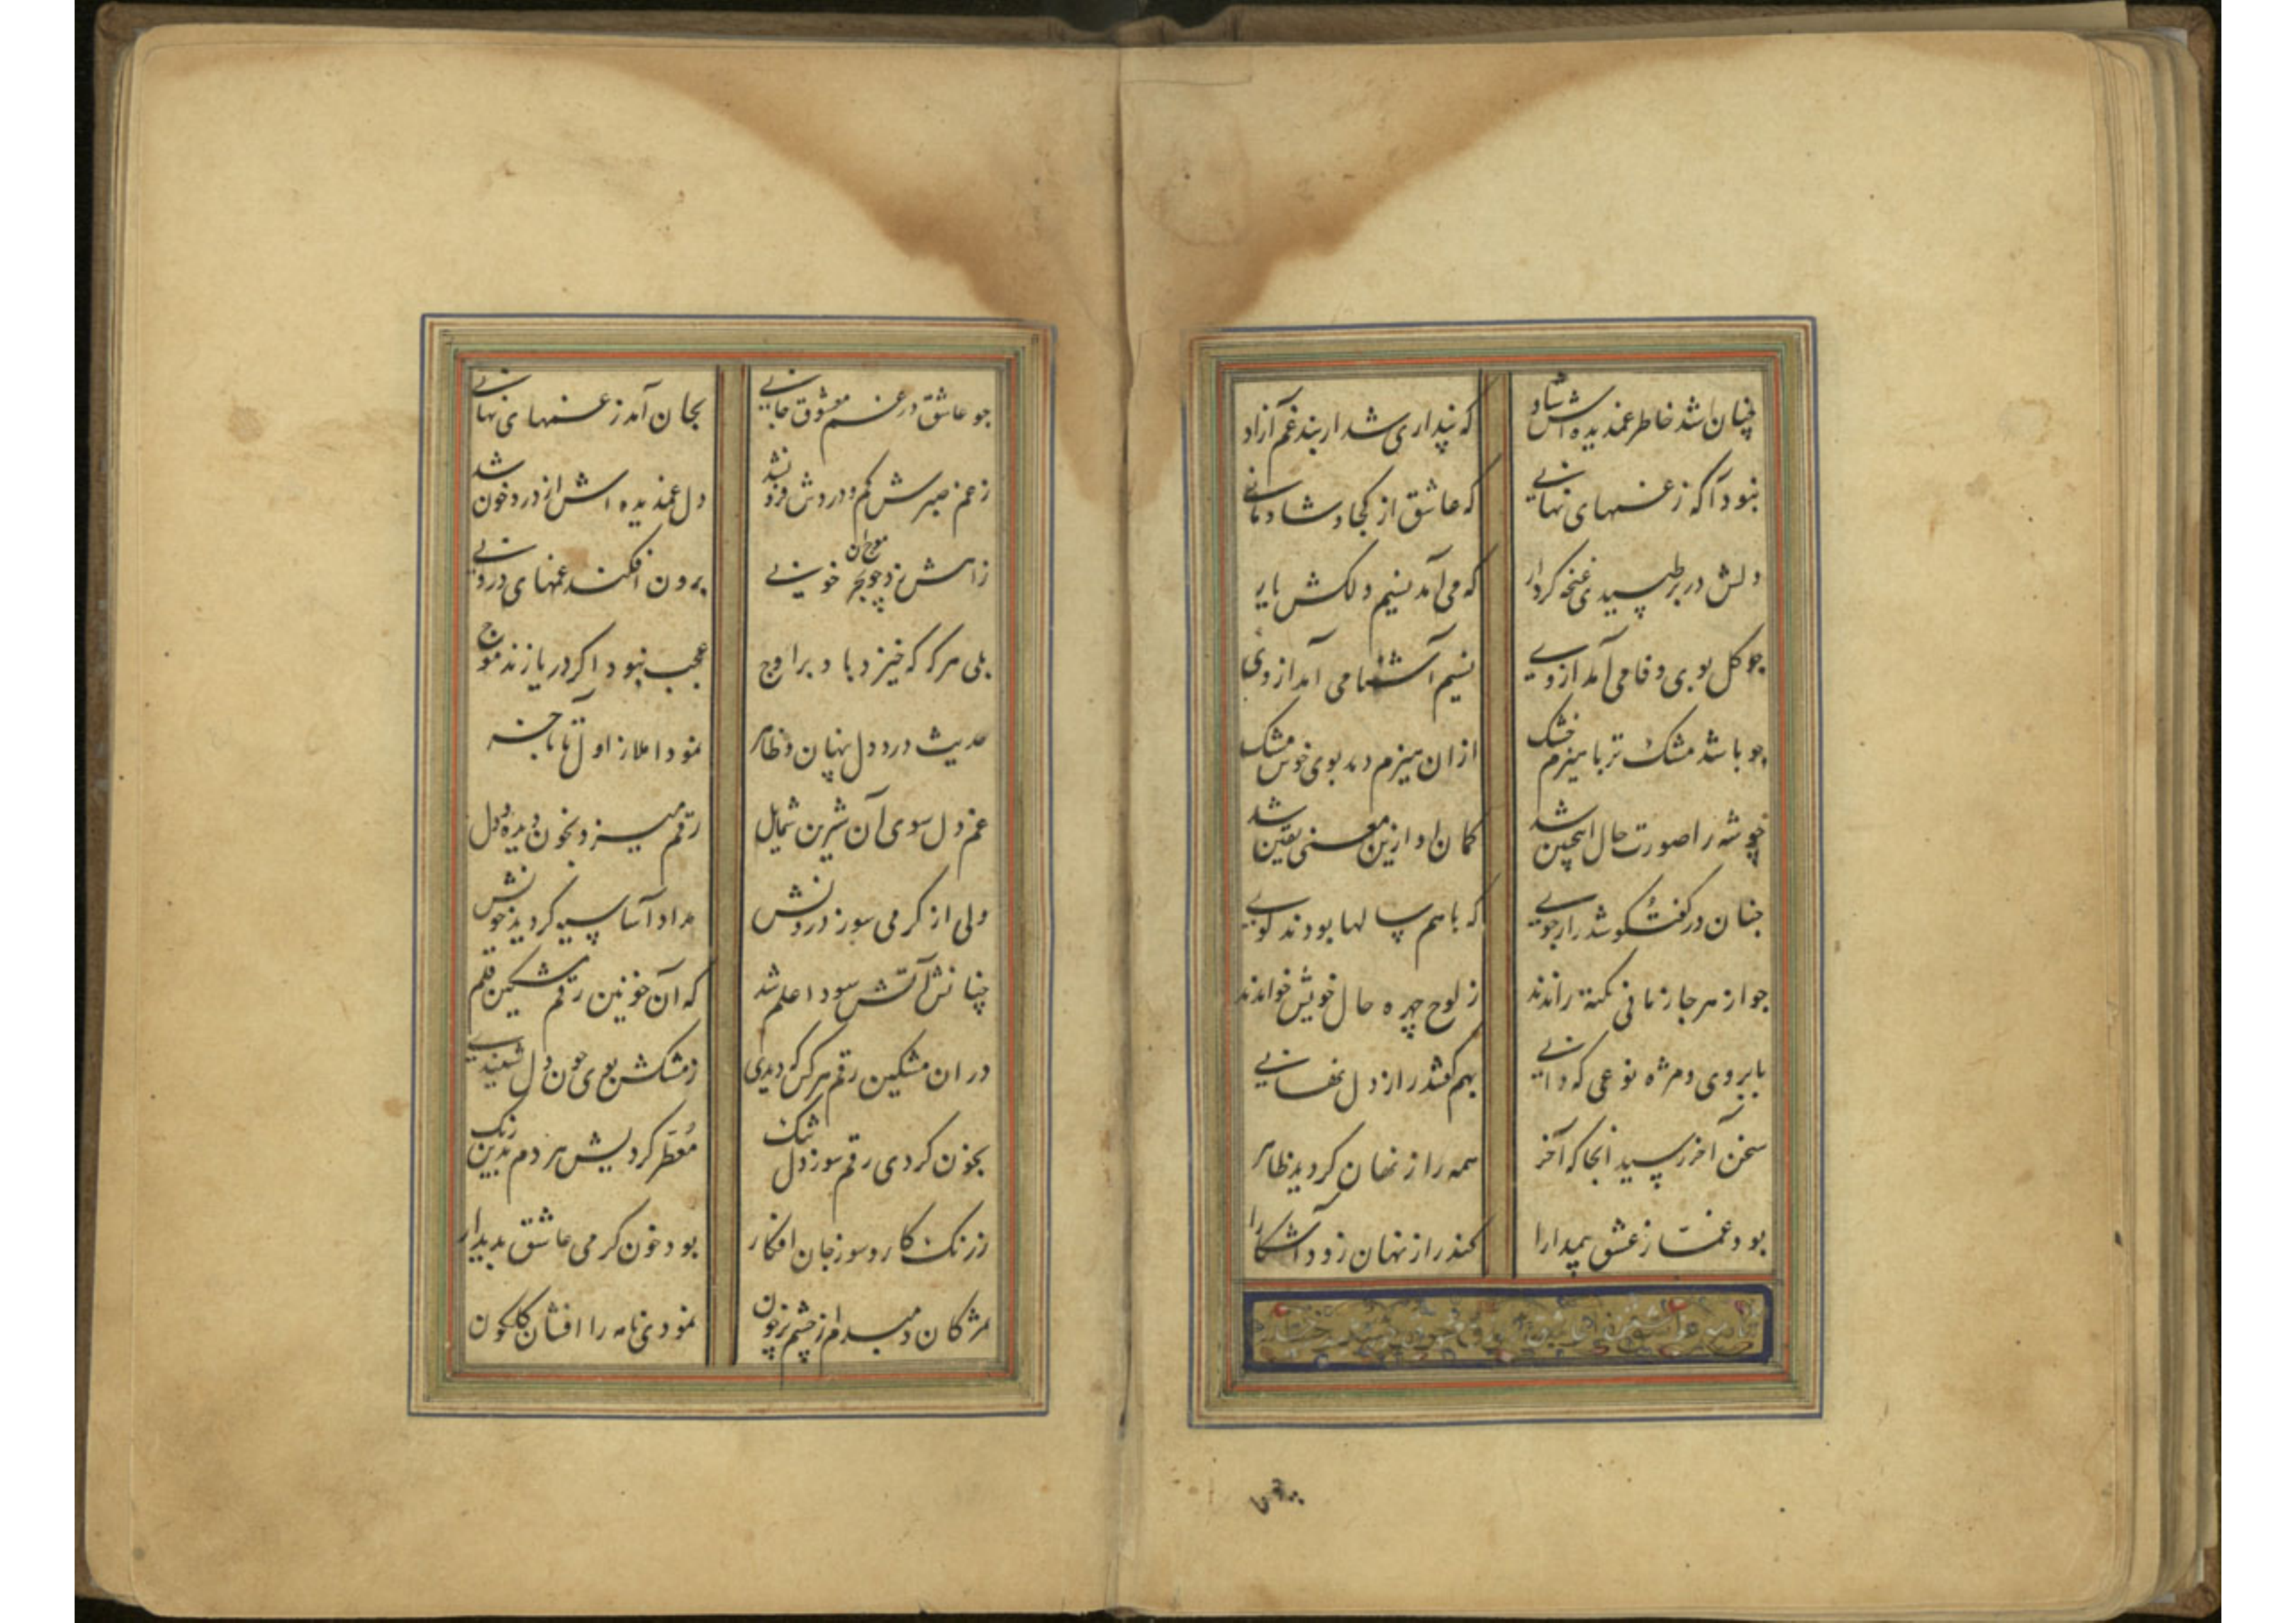 چنان شد خاطر غمدیده اش شاد که پنداری شد از بند غم آزاد
نبود آکه ز غمهای نهانی که عاشق از کجا و شادمانی
دلش در بر طپیدی غنچه کردار که می آمد نسیم دلکش یار
جو کل بوی وفا می آمد از وی نسیم آشنا می آمد از وی
جو باشد مشک تر با هیزم خشک ازان هیزم دهد بوی خوش مشک
چو شه را صورت حال اینچنین شد کمان او ازین معنی یقین شد
جنان در کفت کو شد راز جویی که با هم سالها بودند کویی
جو از هر جا زمانی نکته راندند ز لوح چهره حال خویش خواندند
بابروی و مژه نوعی که دانی بهم کفتند راز دل نهانی
سخن آخر رسید انجا که آخر همه راز نهان کردید ظاهر
بود غمت ز عشق پیدارا کند راز نهان زود آشکارا
نامه عاشق
جو عاشق در غم معشوق جانی بجان آمد ز غمهای نهانی
ز غم صبرش کم و دردش فزون شد دل غمدیده اش از درد خون شد
ز اهش زد چو بحر موج ان خونی برون افکند غمهای درونی
بلی هر که که خیزد باد بر اوج عجب نبود اکر دریا زند موج
حدیث درد دل پنهان و ظاهر نمود املا ز اول تا باخر
غم دل سوی آن شیرین شمایل رقم میزد بخون دیده و دل
ولی از کرمی سوز درونش مداد آسا سیه کردید خونش
چنانش آتش سودا علم شد که آن خونین رقم مشکین قلم
در ان مشکین رقم هر کس که دیدی ز مشکش بوی خون دل شنیدی
بخون کردی رقم سوز دل تنک معطر کردیش هر دم بدین رنک
ز رنک کار و سوز جان افکار بود خون کرمی عاشق بدیدار
مژکان دمبدم از چشم پر خون نمودی نامه را افشان کلکون